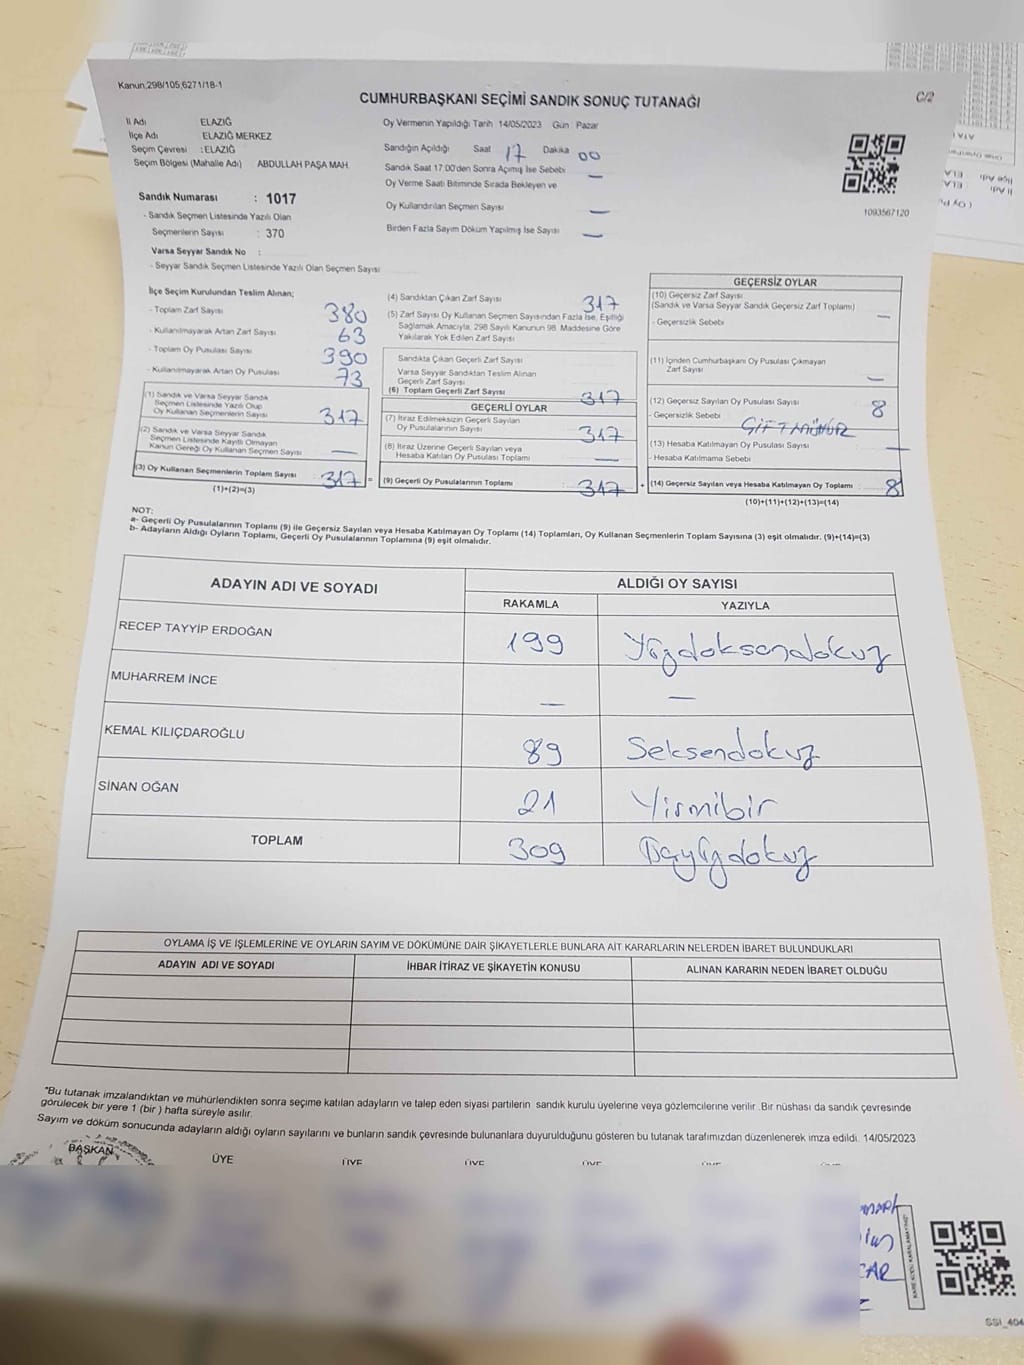 Kanun,298/105,6271/18-1
C/2
CUMHURBAŞKANI SEÇİMİ SANDIK SONUÇ TUTANAĞI
İl Adı ELAZIĞ
İlçe Adı ELAZIĞ MERKEZ
Seçim Çevresi : ELAZIĞ
Seçim Bölgesi (Mahalle Adı) ABDULLAH PAŞA MAH.
Sandık Numarası : 1017
- Sandık Seçmen Listesinde Yazılı Olan
Seçmenlerin Sayısı : 370
Varsa Seyyar Sandık No :
- Seyyar Sandık Seçmen Listesinde Yazılı Olan Seçmen Sayısı
Oy Vermenin Yapıldığı Tarih 14/05/2023 Gün Pazar
Sandığın Açıldığı Saat 17 Dakika 00
Sandık Saat 17:00'den Sonra Açımış İse Sebebi —
Oy Verme Saati Bitiminde Sırada Bekleyen ve
Oy Kullandırılan Seçmen Sayısı —
Birden Fazla Sayım Döküm Yapılmış İse Sayısı —
1093567120
İlçe Seçim Kurulundan Teslim Alınan;
- Toplam Zarf Sayısı 380
- Kullanılmayarak Artan Zarf Sayısı 63
- Toplam Oy Pusulası Sayısı 390
- Kullanılmayarak Artan Oy Pusulası 73
(1) Sandık ve Varsa Seyyar Sandık
Seçmen Listesinde Yazılı Olup
Oy Kullanan Seçmenlerin Sayısı 317
(2) Sandık ve Varsa Seyyar Sandık
Seçmen Listesinde Kayıtlı Olmayan
Kanun Gereği Oy Kullanan Seçmen Sayısı —
(3) Oy Kullanan Seçmenlerin Toplam Sayısı : 317 =
(1)+(2)=(3)
(4) Sandıktan Çıkan Zarf Sayısı 317
(5) Zarf Sayısı Oy Kullanan Seçmen Sayısından Fazla İse, Eşitliği
Sağlamak Amacıyla, 298 Sayılı Kanunun 98. Maddesine Göre
Yakılarak Yok Edilen Zarf Sayısı
Sandıkta Çıkan Geçerli Zarf Sayısı
Varsa Seyyar Sandıktan Teslim Alınan
Geçerli Zarf Sayısı
(6) Toplam Geçerli Zarf Sayısı 317
GEÇERLİ OYLAR
(7) İtiraz Edilmeksizin Geçerli Sayılan
Oy Pusulalarının Sayısı : 317
(8) İtiraz Üzerine Geçerli Sayılan veya
Hesaba Katılan Oy Pusulası Toplamı : —
(9) Geçerli Oy Pusulalarının Toplamı : 317 +
GEÇERSİZ OYLAR
(10) Geçersiz Zarf Sayısı
(Sandık ve Varsa Seyyar Sandık Geçersiz Zarf Toplamı) —
- Geçersizlik Sebebi
(11) İçinden Cumhurbaşkanı Oy Pusulası Çıkmayan
Zarf Sayısı —
(12) Geçersiz Sayılan Oy Pusulası Sayısı 8
- Geçersizlik Sebebi ÇİFT MÜHÜR
(13) Hesaba Katılmayan Oy Pusulası Sayısı —
- Hesaba Katılmama Sebebi
(14) Geçersiz Sayılan veya Hesaba Katılmayan Oy Toplamı : 8
(10)+(11)+(12)+(13)=(14)
NOT:
a- Geçerli Oy Pusulalarının Toplamı (9) ile Geçersiz Sayılan veya Hesaba Katılmayan Oy Toplamı (14) Toplamları, Oy Kullanan Seçmenlerin Toplam Sayısına (3) eşit olmalıdır. (9)+(14)=(3)
b- Adayların Aldığı Oyların Toplamı, Geçerli Oy Pusulalarının Toplamına (9) eşit olmalıdır.
ADAYIN ADI VE SOYADI ALDIĞI OY SAYISI
RAKAMLA YAZIYLA
RECEP TAYYİP ERDOĞAN 199 Yüzdoksandokuz
MUHARREM İNCE — —
KEMAL KILIÇDAROĞLU 89 Seksendokuz
SİNAN OĞAN 21 Yirmibir
TOPLAM 309 Üçyüzdokuz
OYLAMA İŞ VE İŞLEMLERİNE VE OYLARIN SAYIM VE DÖKÜMÜNE DAİR ŞİKAYETLERLE BUNLARA AİT KARARLARIN NELERDEN İBARET BULUNDUKLARI
ADAYIN ADI VE SOYADI İHBAR İTİRAZ VE ŞİKAYETİN KONUSU ALINAN KARARIN NEDEN İBARET OLDUĞU
"Bu tutanak imzalandıktan ve mühürlendikten sonra seçime katılan adayların ve talep eden siyasi partilerin sandık kurulu üyelerine veya gözlemcilerine verilir .Bir nüshası da sandık çevresinde
görülecek bir yere 1 (bir ) hafta süreyle asılır.
Sayım ve döküm sonucunda adayların aldığı oyların sayılarını ve bunların sandık çevresinde bulunanlara duyurulduğunu gösteren bu tutanak tarafımızdan düzenlenerek imza edildi. 14/05/2023
BAŞKAN ÜYE ÜYE ÜYE ÜYE ÜYE
KARE KODU KARALAMAYINIZ